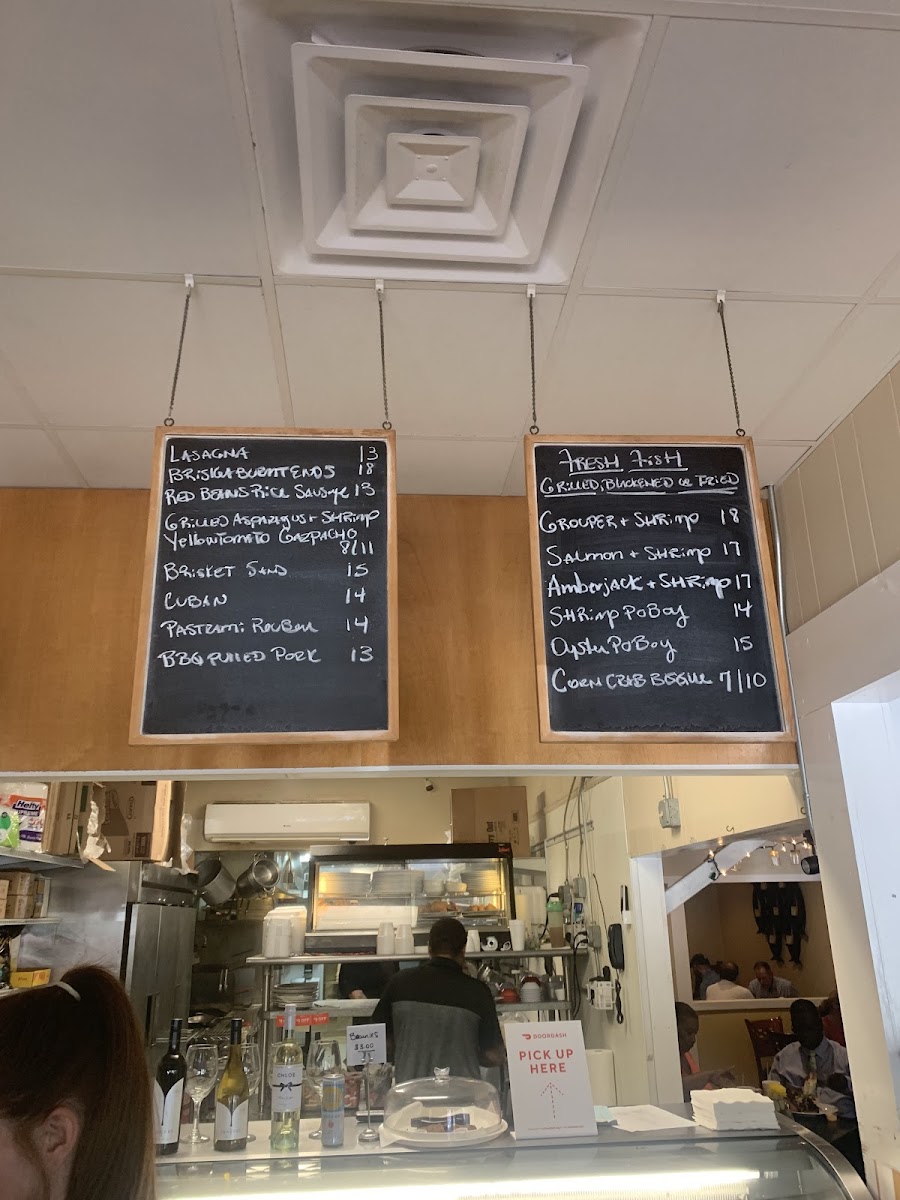 LASAGNA 13
BRISKA BURNT ENDS 18
RED BEANS RICE SAUSAGE 13
GRILLED ASPARAGUS + SHRIMP
YELLOW TOMATO GAZPACHO
8/11
BRISKET SAND 15
CUBAN 14
PASTRAMI REUBEN 14
BBQ PULLED PORK 13
FRESH FISH
GRILLED, BLACKENED OR FRIED
GROUPER + SHRIMP 18
SALMON + SHRIMP 17
AMBERJACK + SHRIMP 17
SHRIMP PO BOY 14
OYSTER PO BOY 15
CORN CRAB BISQUE 7/10
Hefty
Brownies
$3.00
CHLOE
DOORDASH
PICK UP
HERE